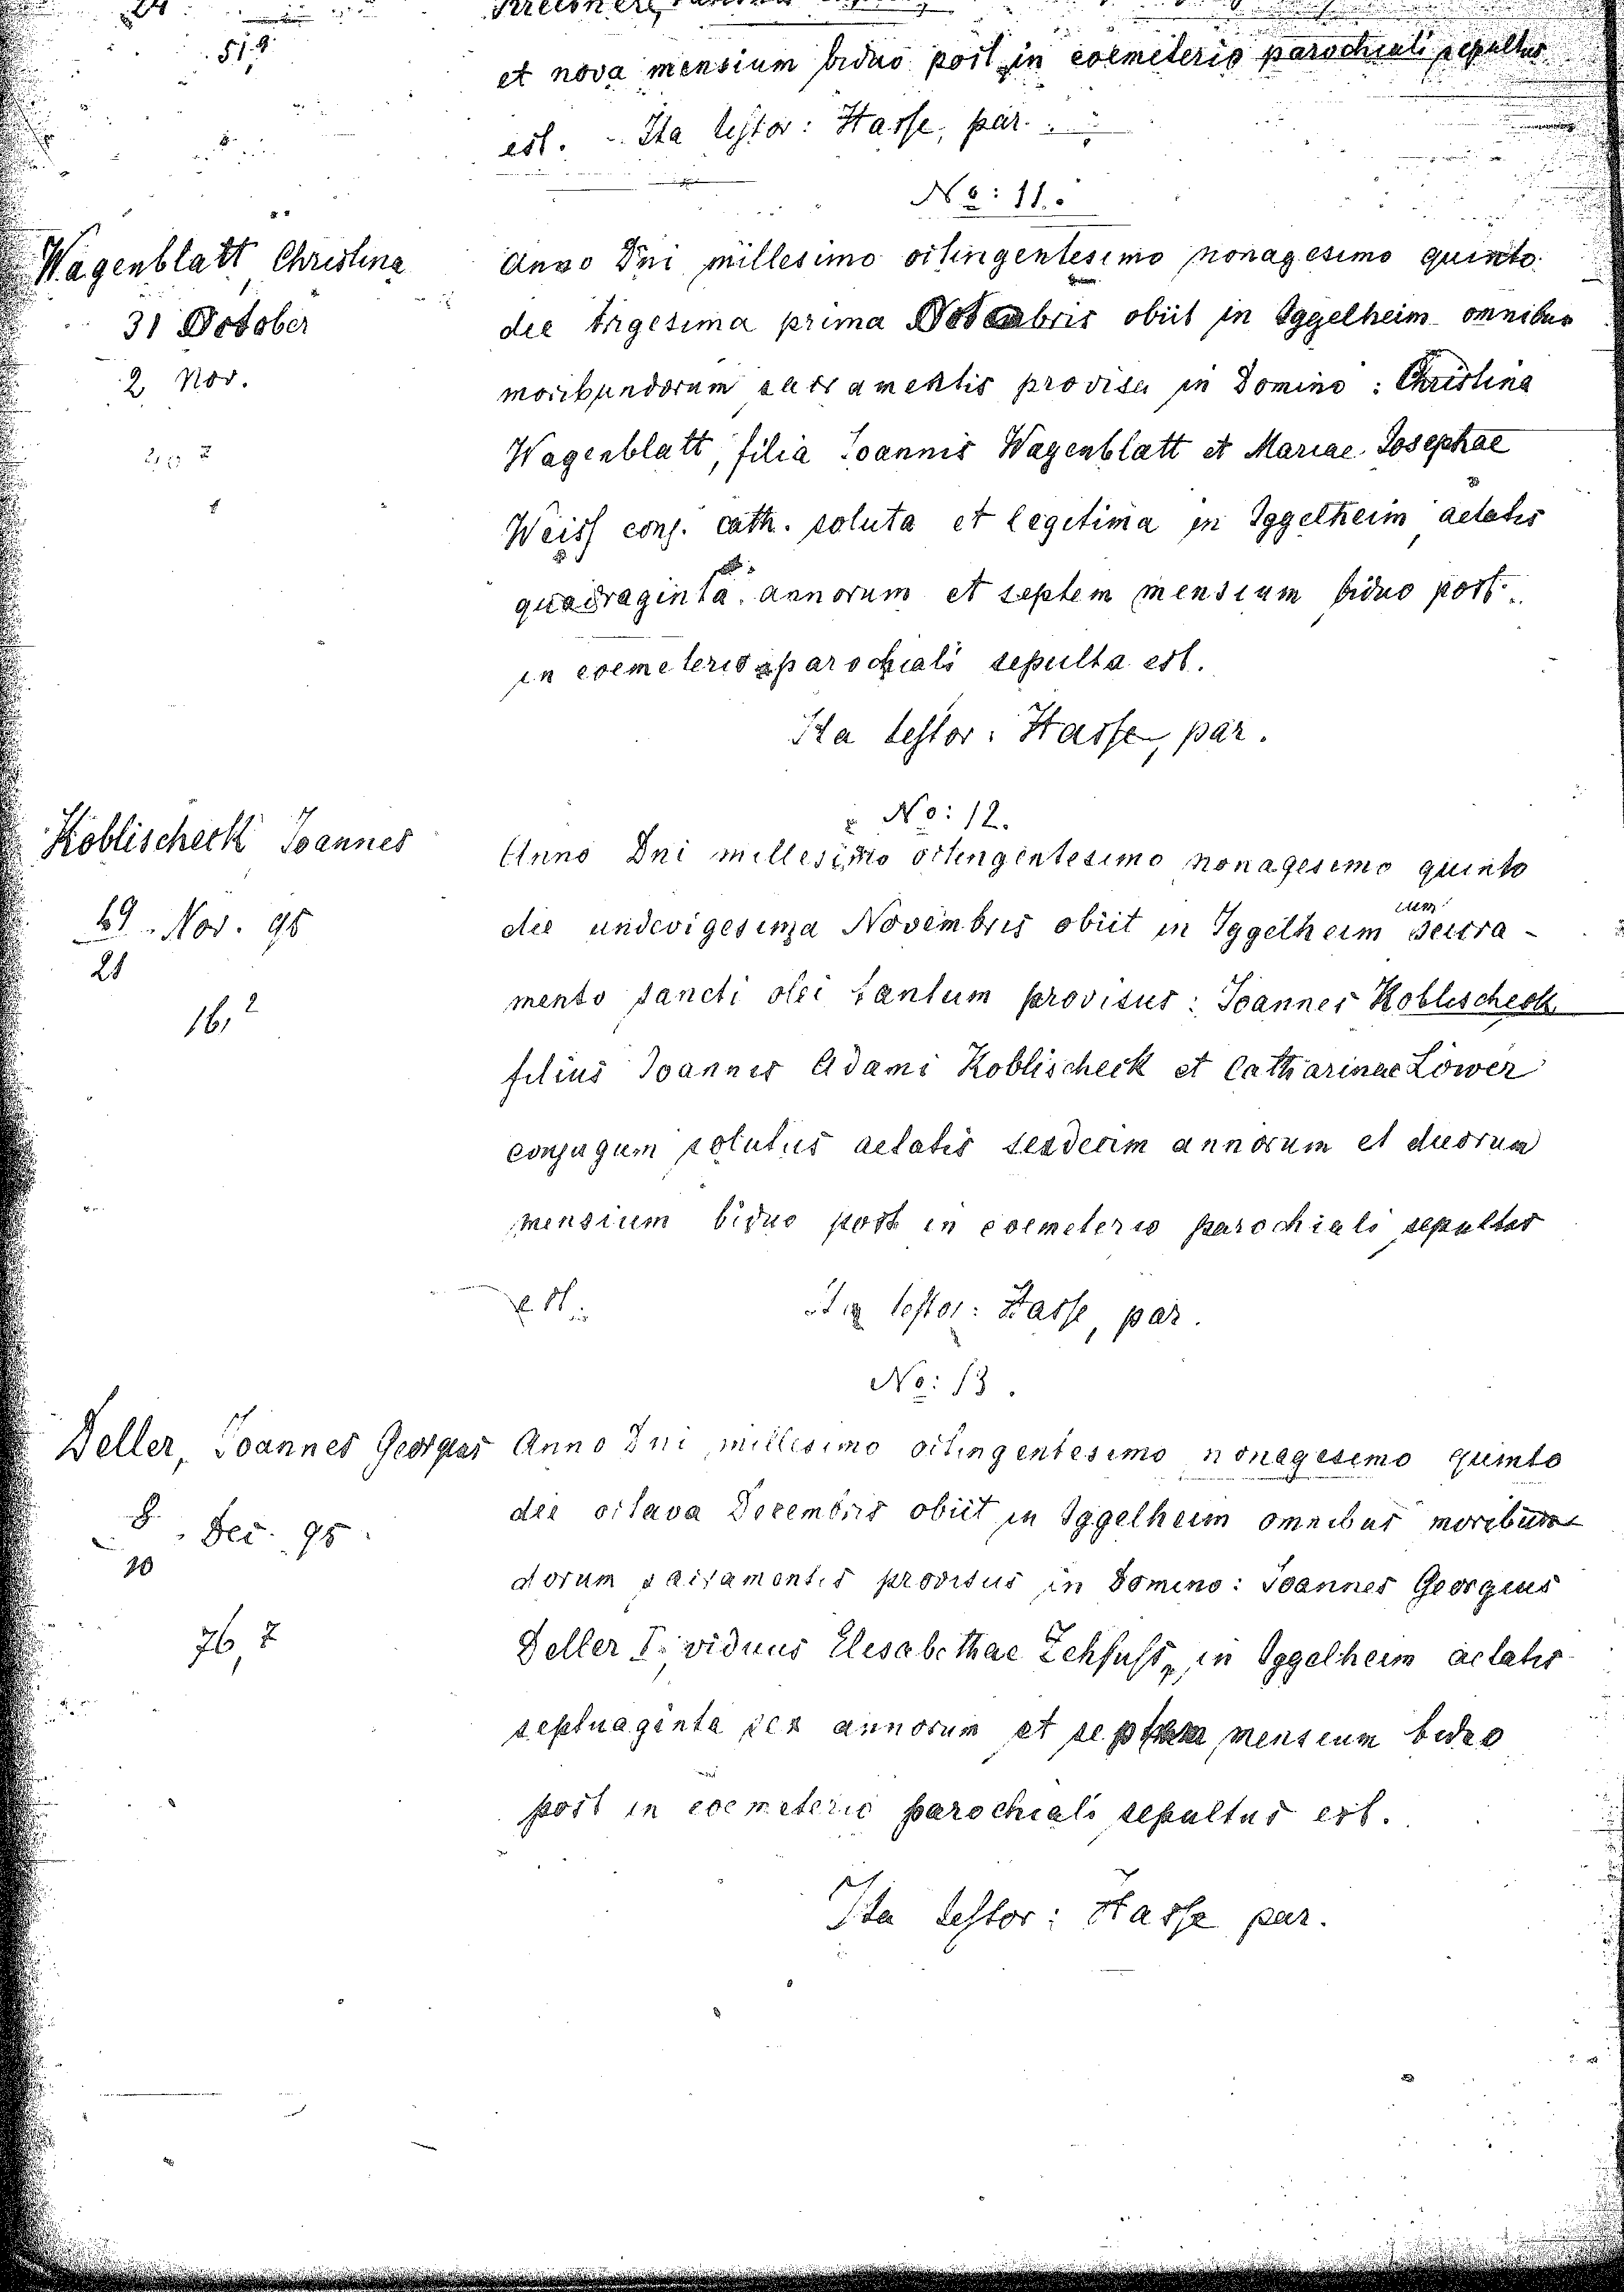 24
51,9
et nova mensium biduo post in coemiterio parochiali sepultus
est. Ita testor: Hasse, par.
No: 11.
Wagenblatt Christina
31 October
2 Nov.
Anno Dni millesimo octingentesimo nonagesimo quinto
die trigesima prima Octobris obiit in Iggelheim omnibus
moribundorum sacramentis provisa in Domino: Christina
Wagenblatt, filia Joannis Wagenblatt et Mariae Josephae
Weiss conj. cath. soluta et legitima in Iggelheim aetatis
quadraginta annorum et septem mensium biduo post
in coemeterio parochiali sepulta est.
Ita testor: Hasse, par.
No: 12.
Koblischeck Joannes
19. Nov. 95
21
16,2
Anno Dni millesimo octingentesimo nonagesimo quinto
die undevigesima Novembris obiit in Iggelheim cum sacra-
mento sancti olei tantum provisus: Joannes Koblischeck
filius Joannis Adami Koblischeck et Catharinae Löwer
conjugum solutus aetatis sexdecim annorum et duorum
mensium biduo post in coemeterio parochiali sepultus
est. Ita testor: Hasse, par.
No: 13.
Deller, Joannes Georgius
8. Dec. 95
10
76,7
Anno Dni millesimo octingentesimo nonagesimo quinto
die octava Decembris obiit in Iggelheim omnibus moribun-
dorum sacramentis provisus in Domino: Joannes Georgius
Deller I. viduus Elisabethae Zehfuss, in Iggelheim aetatis
septuaginta sex annorum et septem mensium biduo
post in coemeterio parochiali sepultus est.
Ita testor: Hasse par.